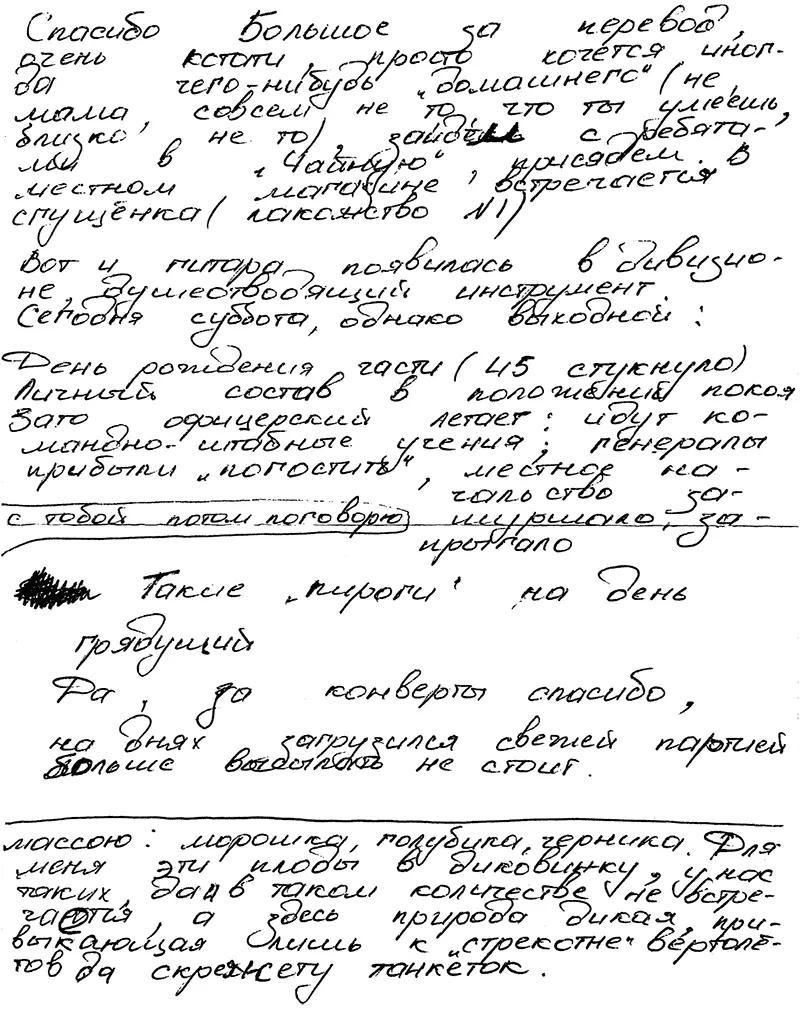 Спасибо Большое за перевод,
очень кстати, просто хочется иног-
да чего-нибудь „домашнего“ (не,
мама, совсем не то, что ты умеешь,
близко не то), зайдём с ребята-
ми в „Чайную“, присядем. В
местном магазине, встречается
сгущёнка (лакомство №1)
Вот и гитара появилась в дивизио-
не, душетводящий инструмент.
Сегодня суббота, однако выходной:
День рождения части (45 стукнуло)
Личный состав в положений покоя
Зато офицерский летает: идут ко-
мандно-штабные учения; генералы
прибыли „погостить“, местное на-
чальство за-
с тобой потом поговорю
шуршало, за-
прыгало
Такие „пироги“ на день
грядущий
Да, за конверты спасибо,
на днях загрузился свежей партией
больше высылать не стоит.
массою: морошка, голубика, черника. Для
меня эти плоды в диковинку, у нас
таких, да и в таком количестве не встре-
чается, а здесь природа дикая, при-
выкающая лишь к „стрекотне“ вертолё-
тов да скрежету танкеток.